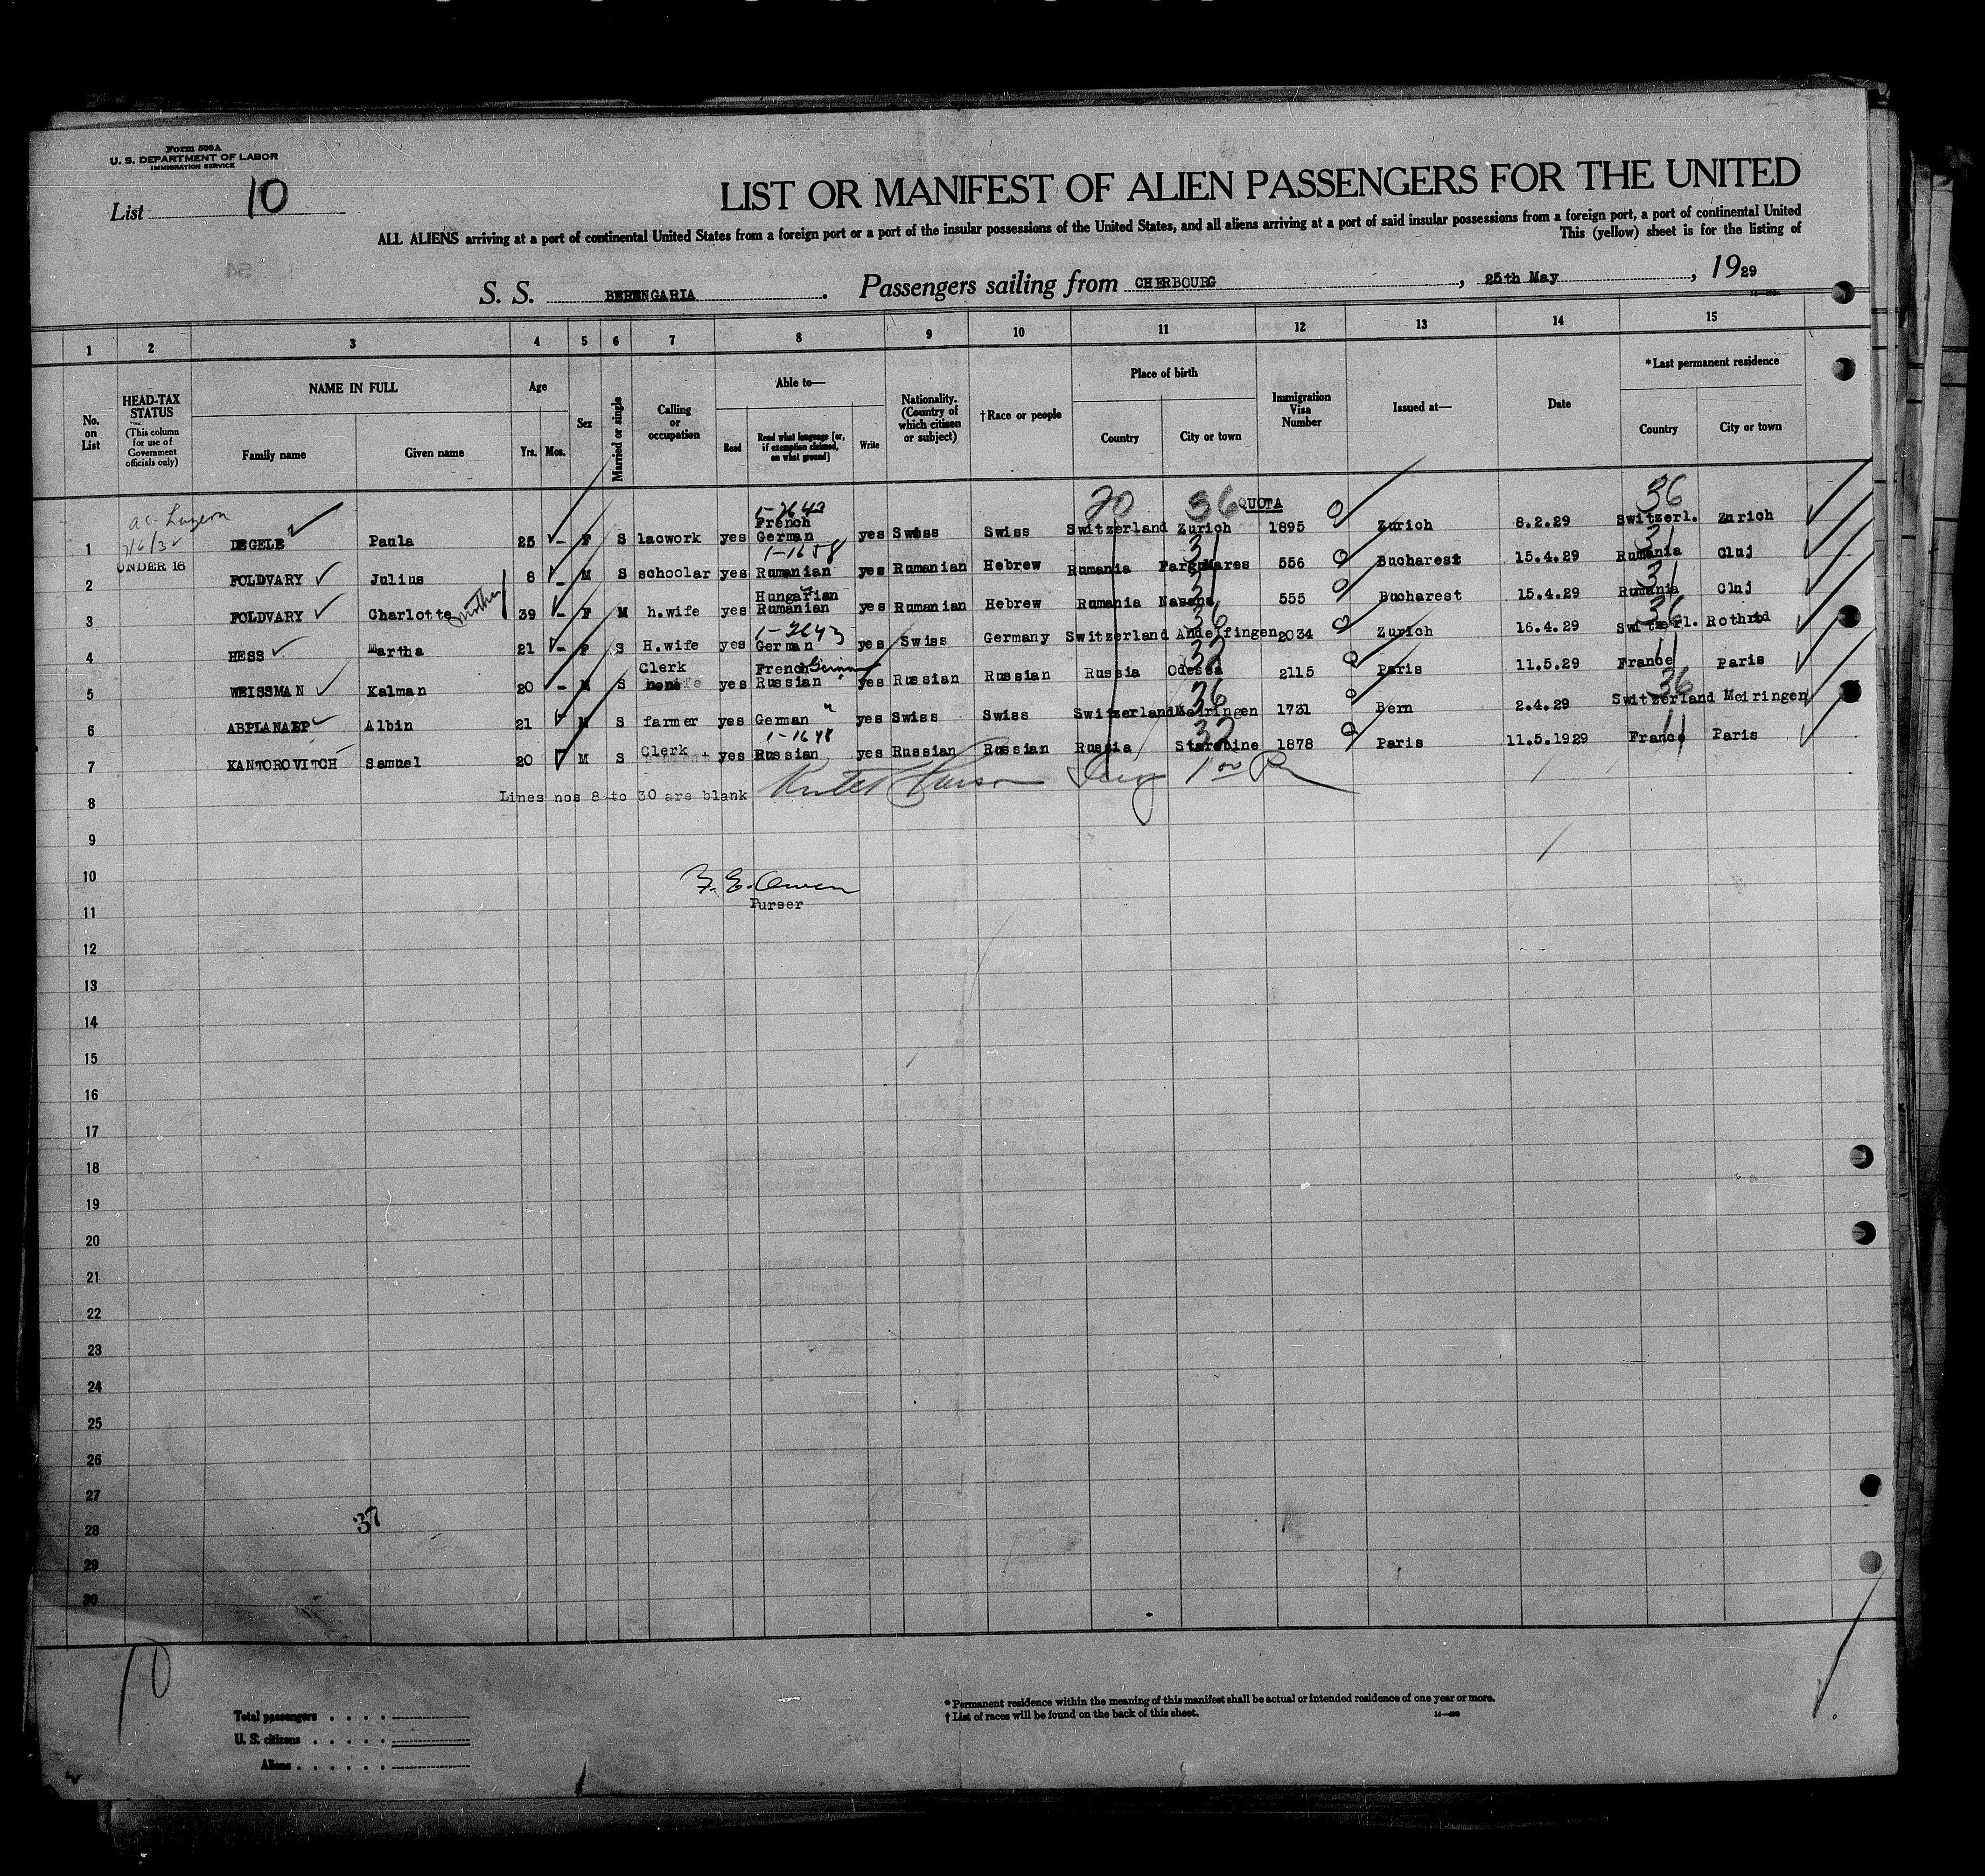 Form 500A
U. S. DEPARTMENT OF LABOR
IMMIGRATION SERVICE
List 10
LIST OR MANIFEST OF ALIEN PASSENGERS FOR THE UNITED
ALL ALIENS arriving at a port of continental United States from a foreign port or a port of the insular possessions of the United States, and all aliens arriving at a port of said insular possessions from a foreign port, a port of continental United
This (yellow) sheet is for the listing of
S. S. BERENGARIA. Passengers sailing from CHERBOURG, 25th May, 1929
1 2 3 4 5 6 7 8 9 10 11 12 13 14 15
No. on List
HEAD-TAX STATUS (This column for use of Government officials only)
NAME IN FULL Family name Given name
Age Yrs. Mos.
Sex
Married or single
Calling or occupation
Able to— Read Read what language [or, if exemption claimed, on what ground] Write
Nationality. (Country of which citizen or subject)
†Race or people
Place of birth Country City or town
Immigration Visa Number
Issued at—
Date
*Last permanent residence Country City or town
20 36 QUOTA 36
5-2643
1 DEGELE Paula 25 - F S lacwork yes French German yes Swiss Swiss Switzerland Zurich 1895 Zurich 8.2.29 Switzerl. Zurich
UNDER 16
1-1658 31 31
2 FOLDVARY Julius 8 - M S schoolar yes Rumanian yes Rumanian Hebrew Rumania 556 Bucharest 15.4.29 Rumania Cluj
31 31
3 FOLDVARY Charlotte mother 39 - F M h.wife yes Hungarian Rumanian yes Rumanian Hebrew Rumania 555 Bucharest 15.4.29 Rumania Cluj
1-2643 36 36
4 HESS Martha 21 - F S H.wife yes German yes Swiss Germany Switzerland Andelfingen 2034 Zurich 16.4.29 Switzerl.
32 11
5 WEISSMAN Kalman 20 - M S Clerk yes French German Russian yes Russian Russian Russia Odessa 2115 Paris 11.5.29 France Paris
36 36
6 ABPLANALP Albin 21 - M S farmer yes German yes Swiss Swiss Switzerland Meiringen 1731 Bern 2.4.29 Switzerland Meiringen
1-1648 32 11
7 KANTOROVITCH Samuel 20 M S Clerk yes Russian yes Russian Russian Russia Starobine 1878 Paris 11.5.1929 France Paris
8 Lines nos 8 to 30 are blank
9
10 F. E. Owen
11 Purser
12
13
14
15
16
17
18
19
20
21
22
23
24
25
26
27
28 37
29
30
10
Total passengers
U. S. citizens
Aliens
* Permanent residence within the meaning of this manifest shall be actual or intended residence of one year or more.
† List of races will be found on the back of this sheet.